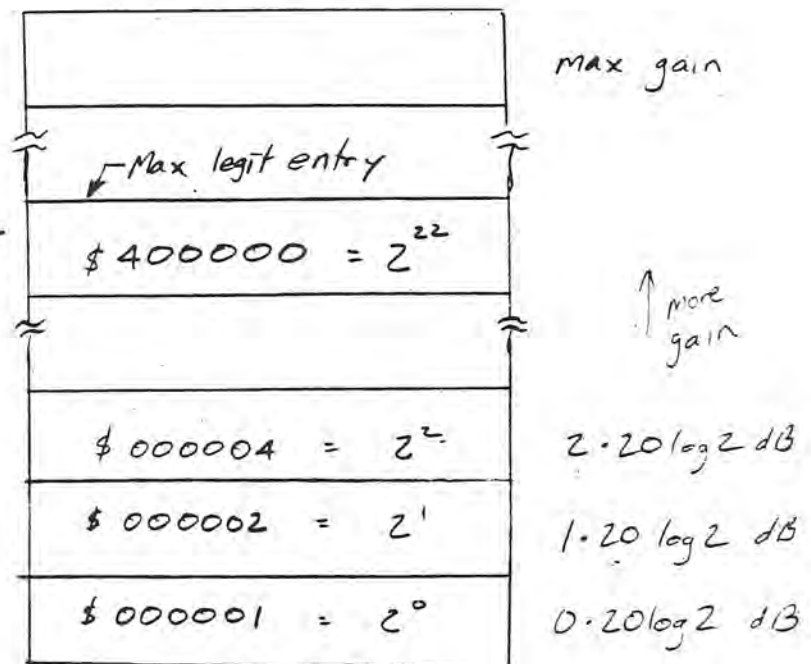 max gain
Max legit entry
$ 400000 = 2²²
more
gain
$ 000004 = 2² 2·20log2 dB
$ 000002 = 2¹ 1·20 log2 dB
$ 000001 = 2⁰ 0·20log2 dB